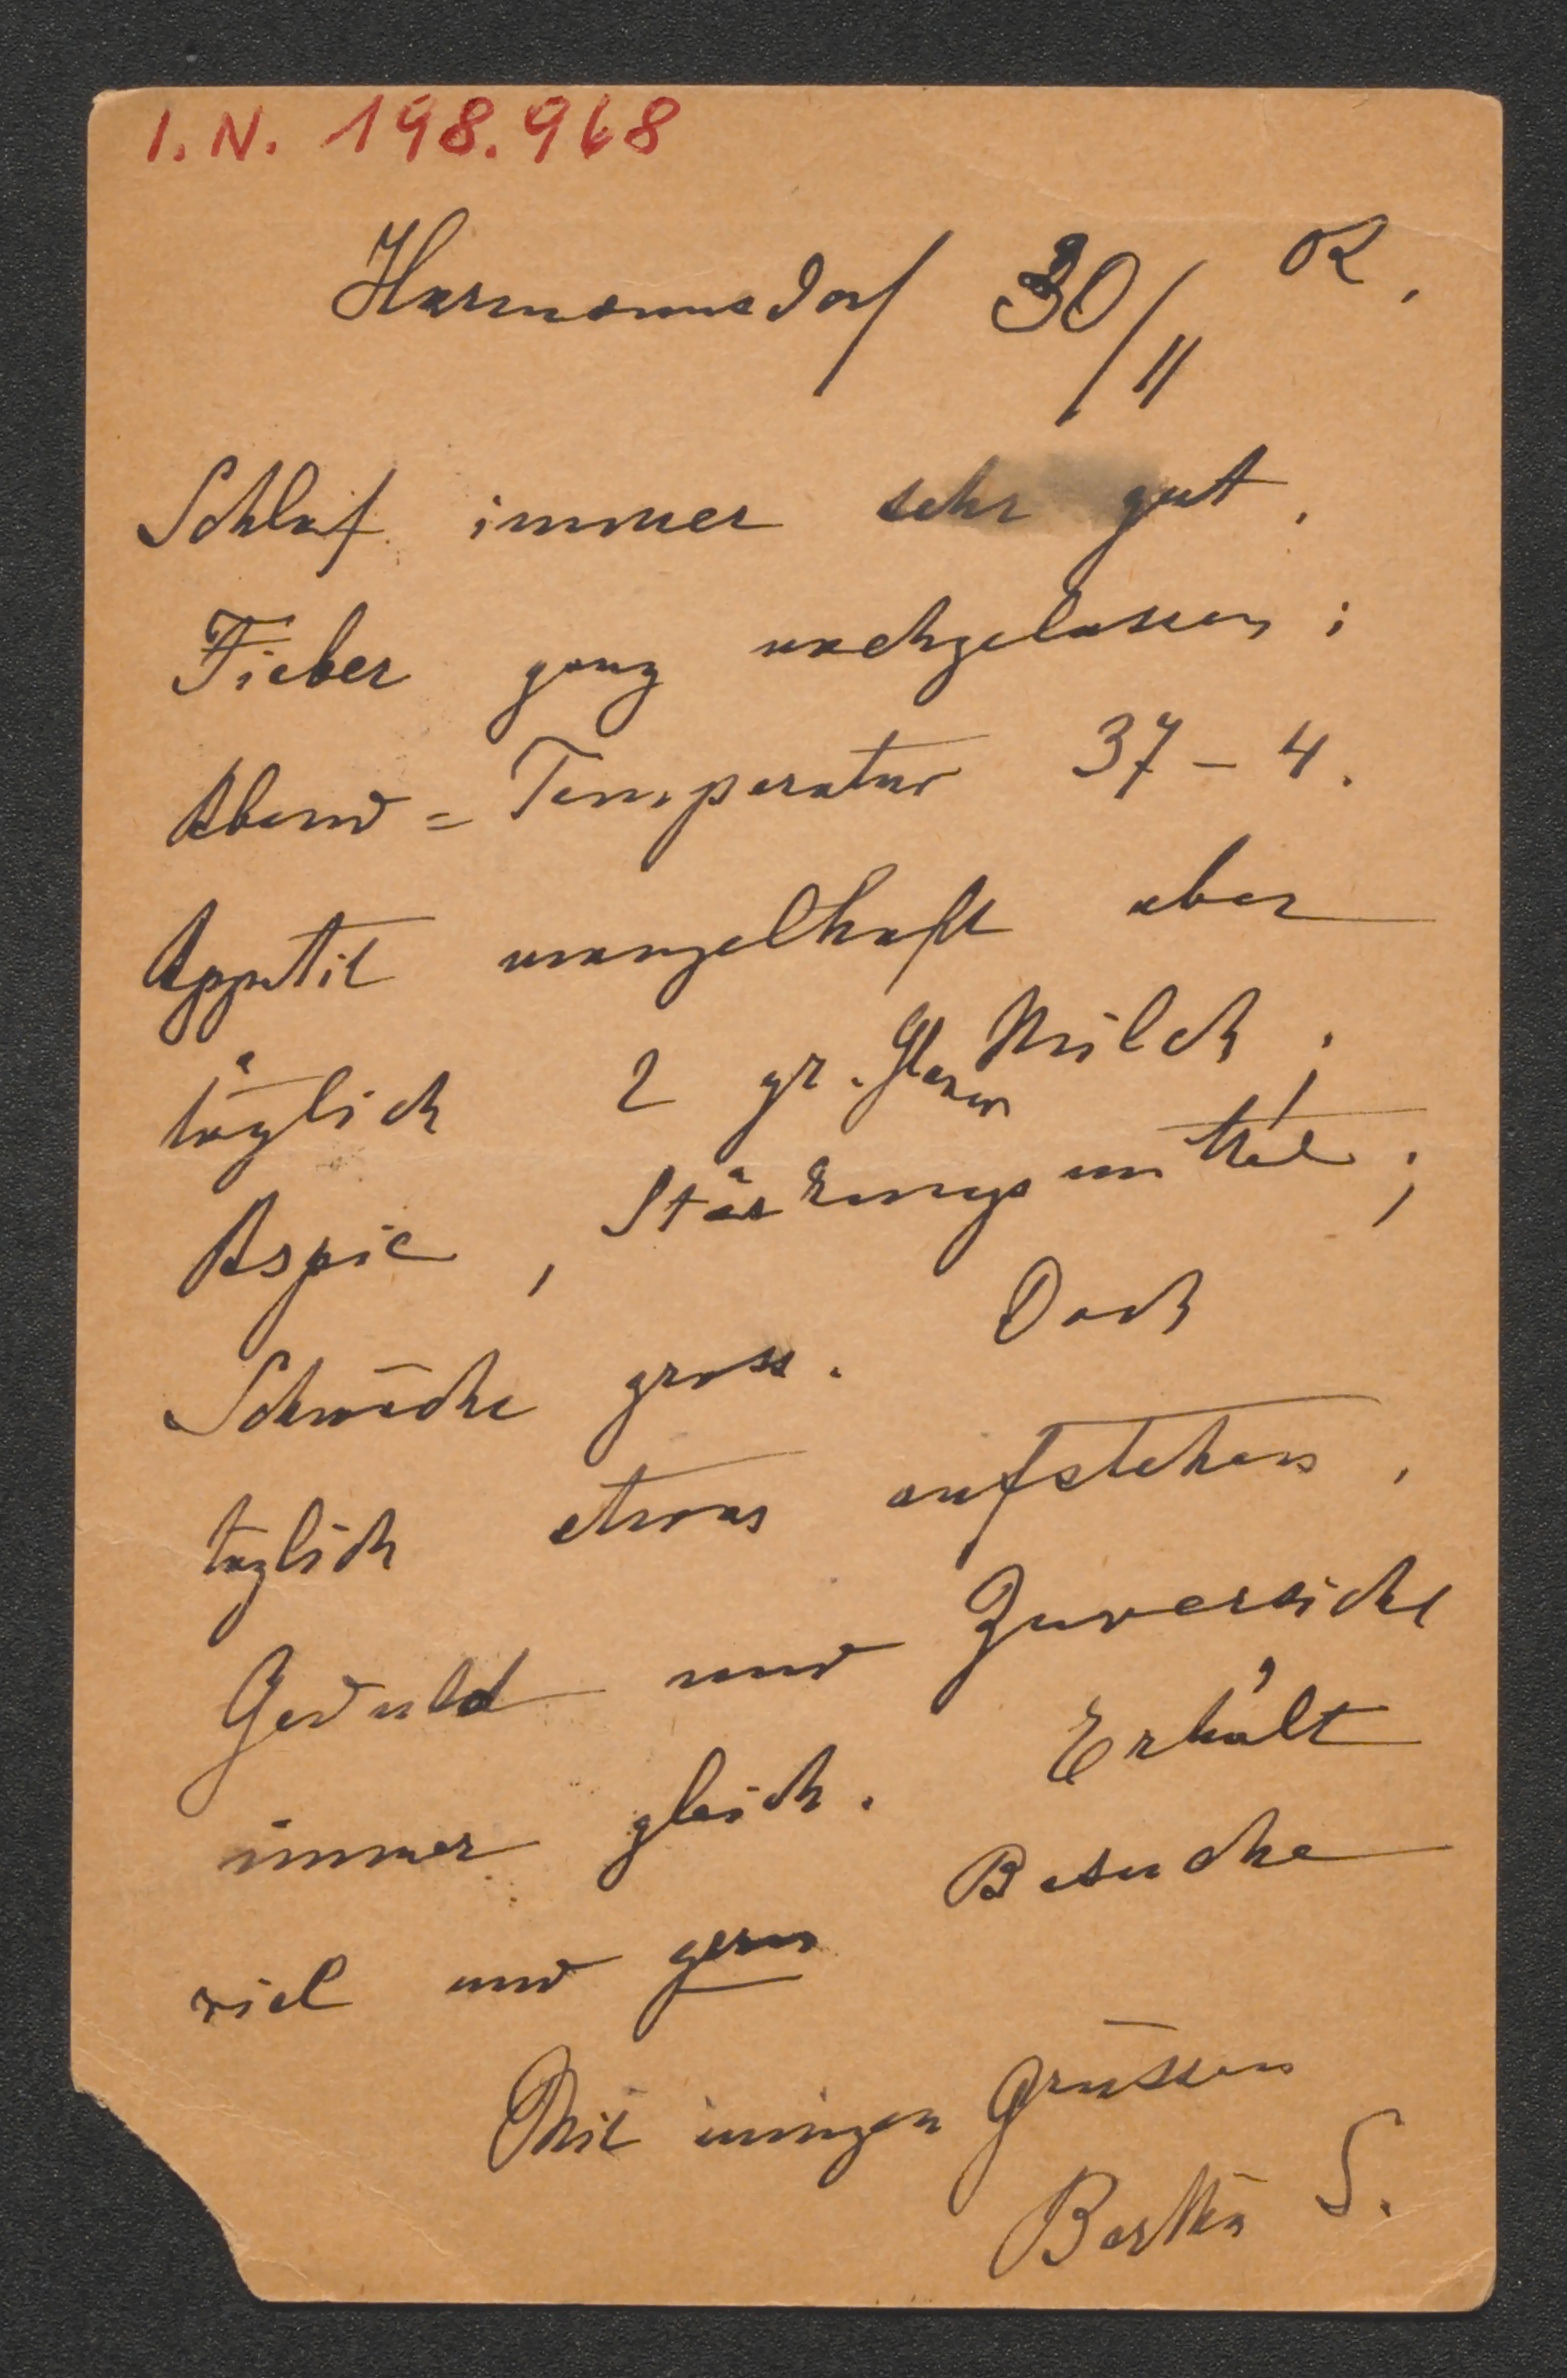 I.N. 198.968
Harmannsdorf 30/11 02.
Schlaf immer sehr gut.
Fieber ganz nachgelassen;
Abend=Temperatur 37-4.
Appetit mangelhaft aber
täglich 2 gr. Gläser Milch;
Aspic, Stärkungsmittel;
Schwäche gross. Doch
täglich etwas aufstehen.
Geduld und Zuversicht
immer gleich. Erhält
viel und gern Besuche
Mit innigen Grüssen
Bertha S.